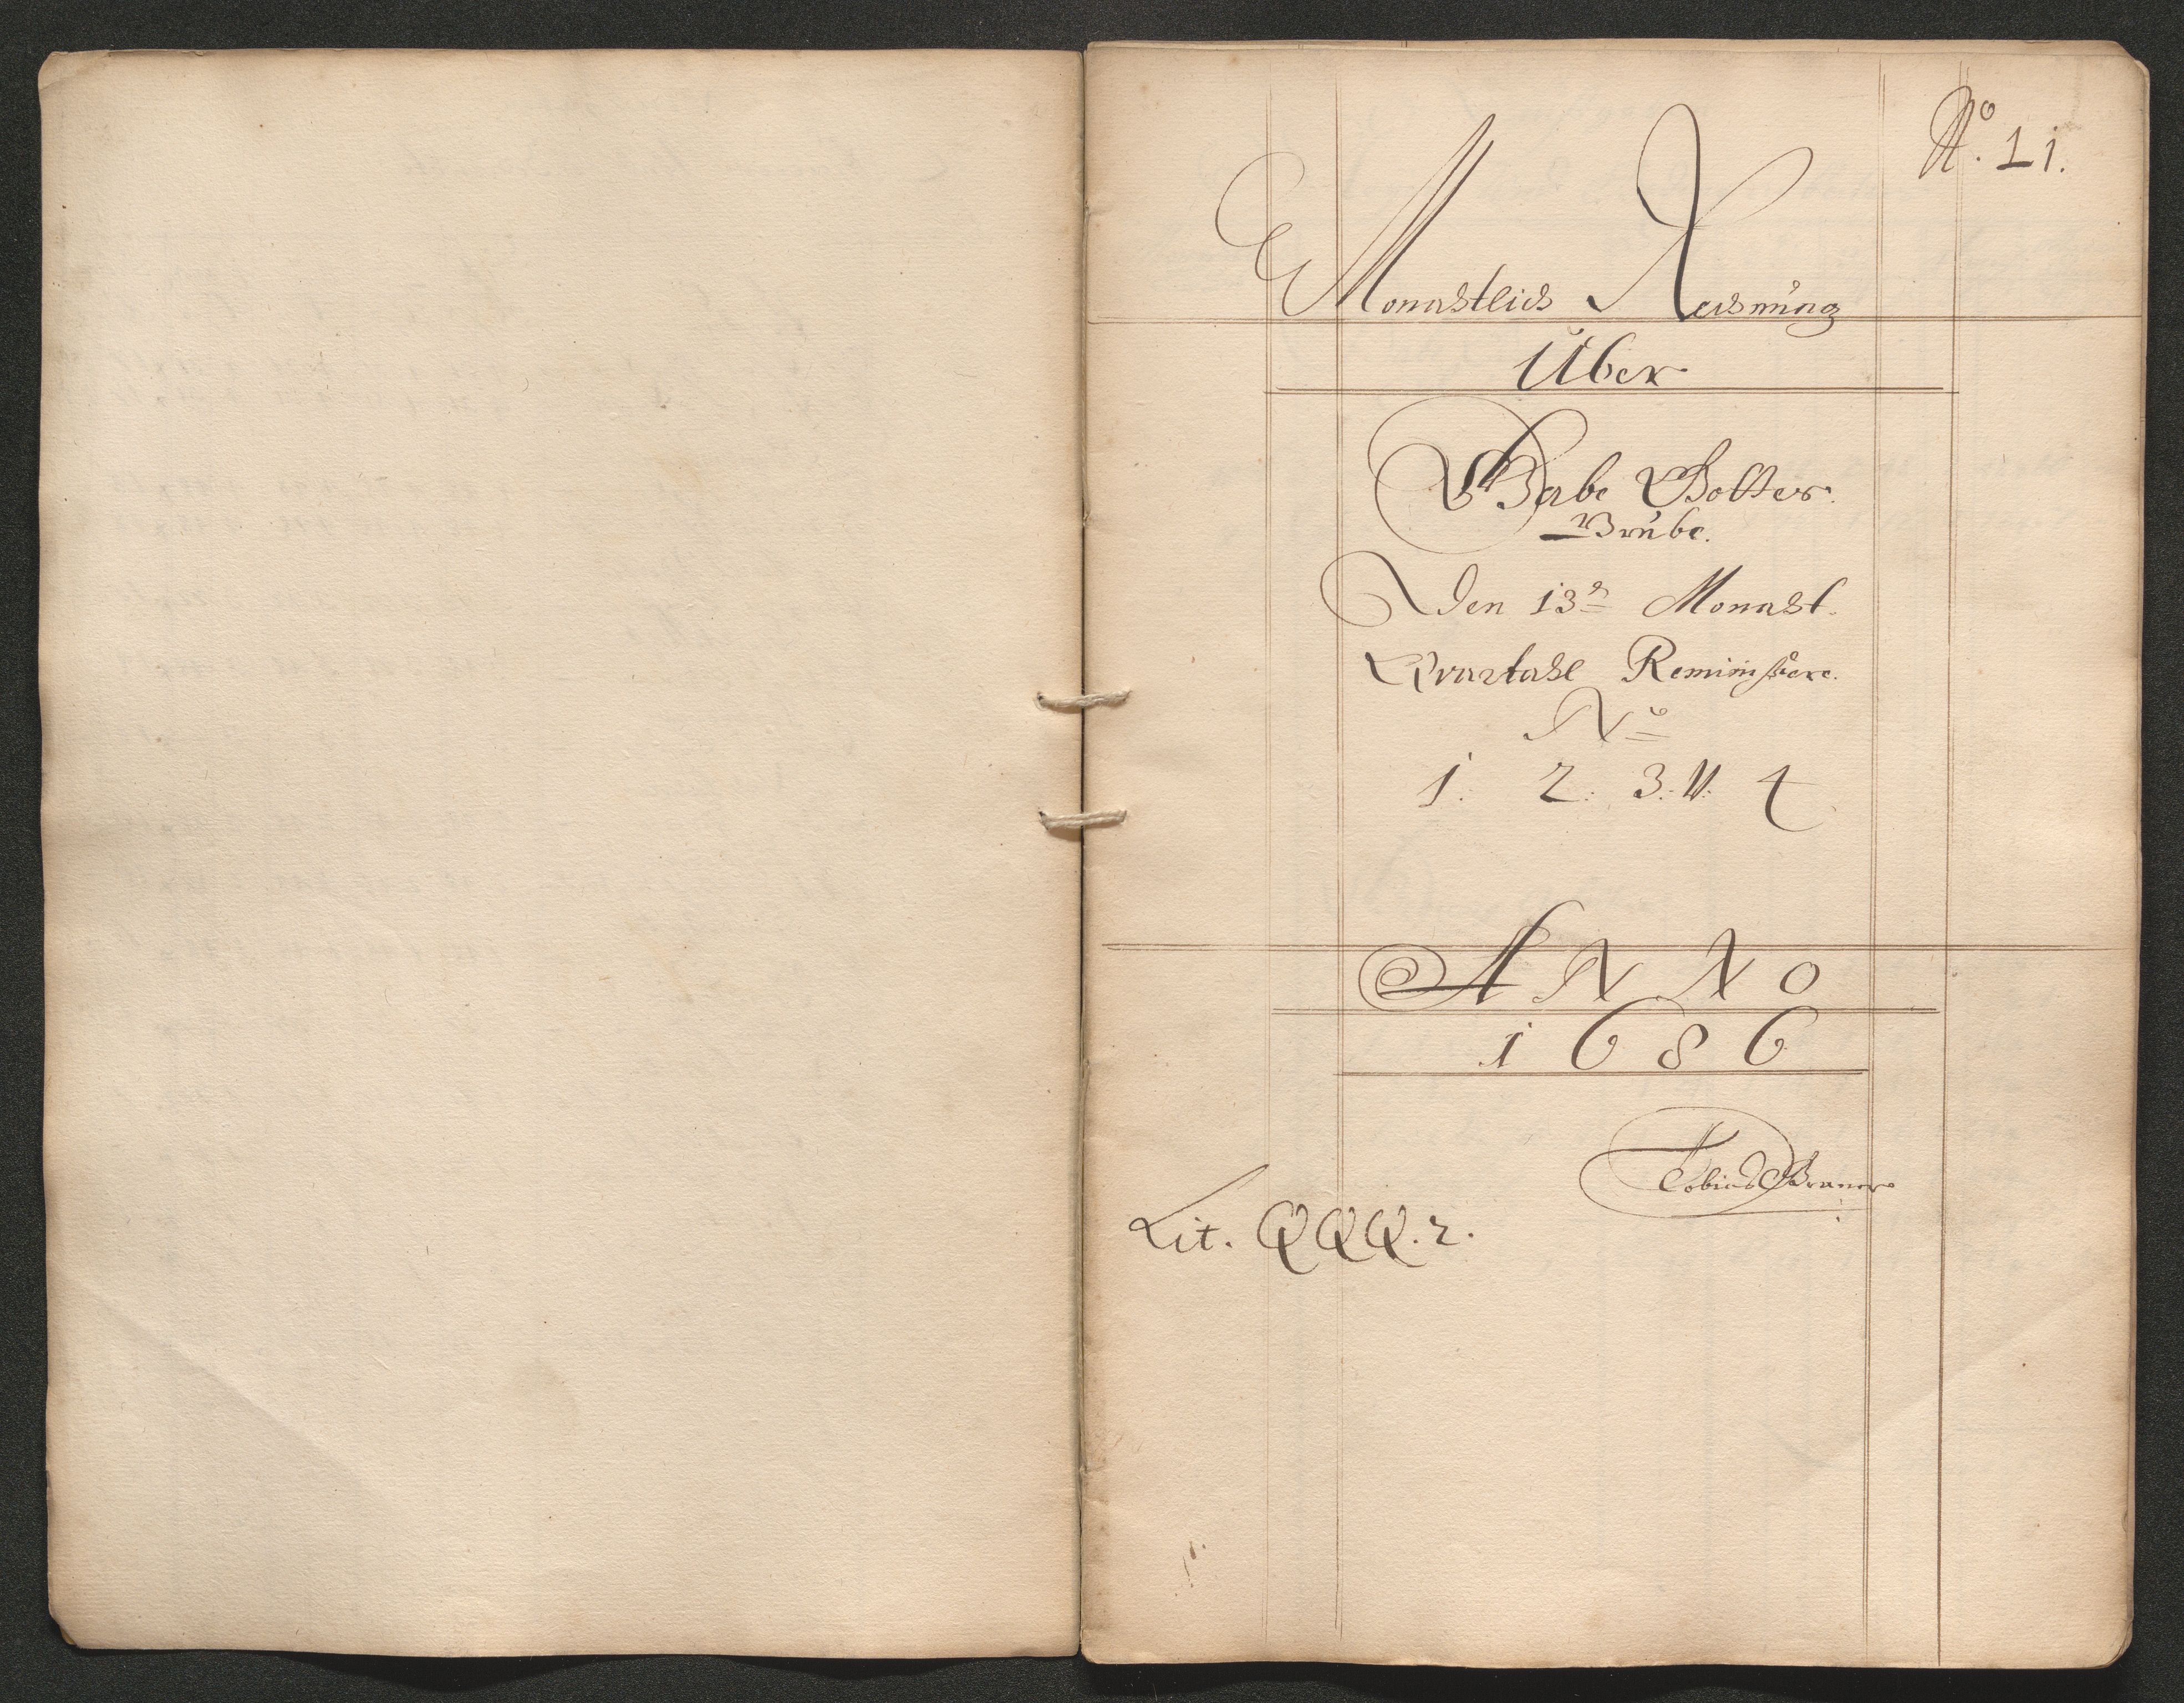 No. 11.
Monahtlich Rechnung
Über
Gabe Gottes
Grube.
Den 13n Monaht.
Qvartahl Reminiscere.
No
1. 2. 3. U. 4
ANNO
1686
Tobias
Lit. QQQ. 2.